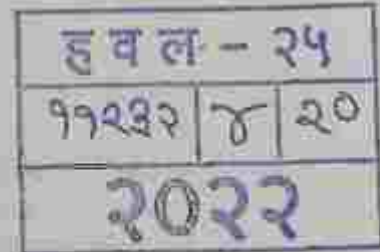 हवल - २५
११२३२ | ४ | २०
२०२२